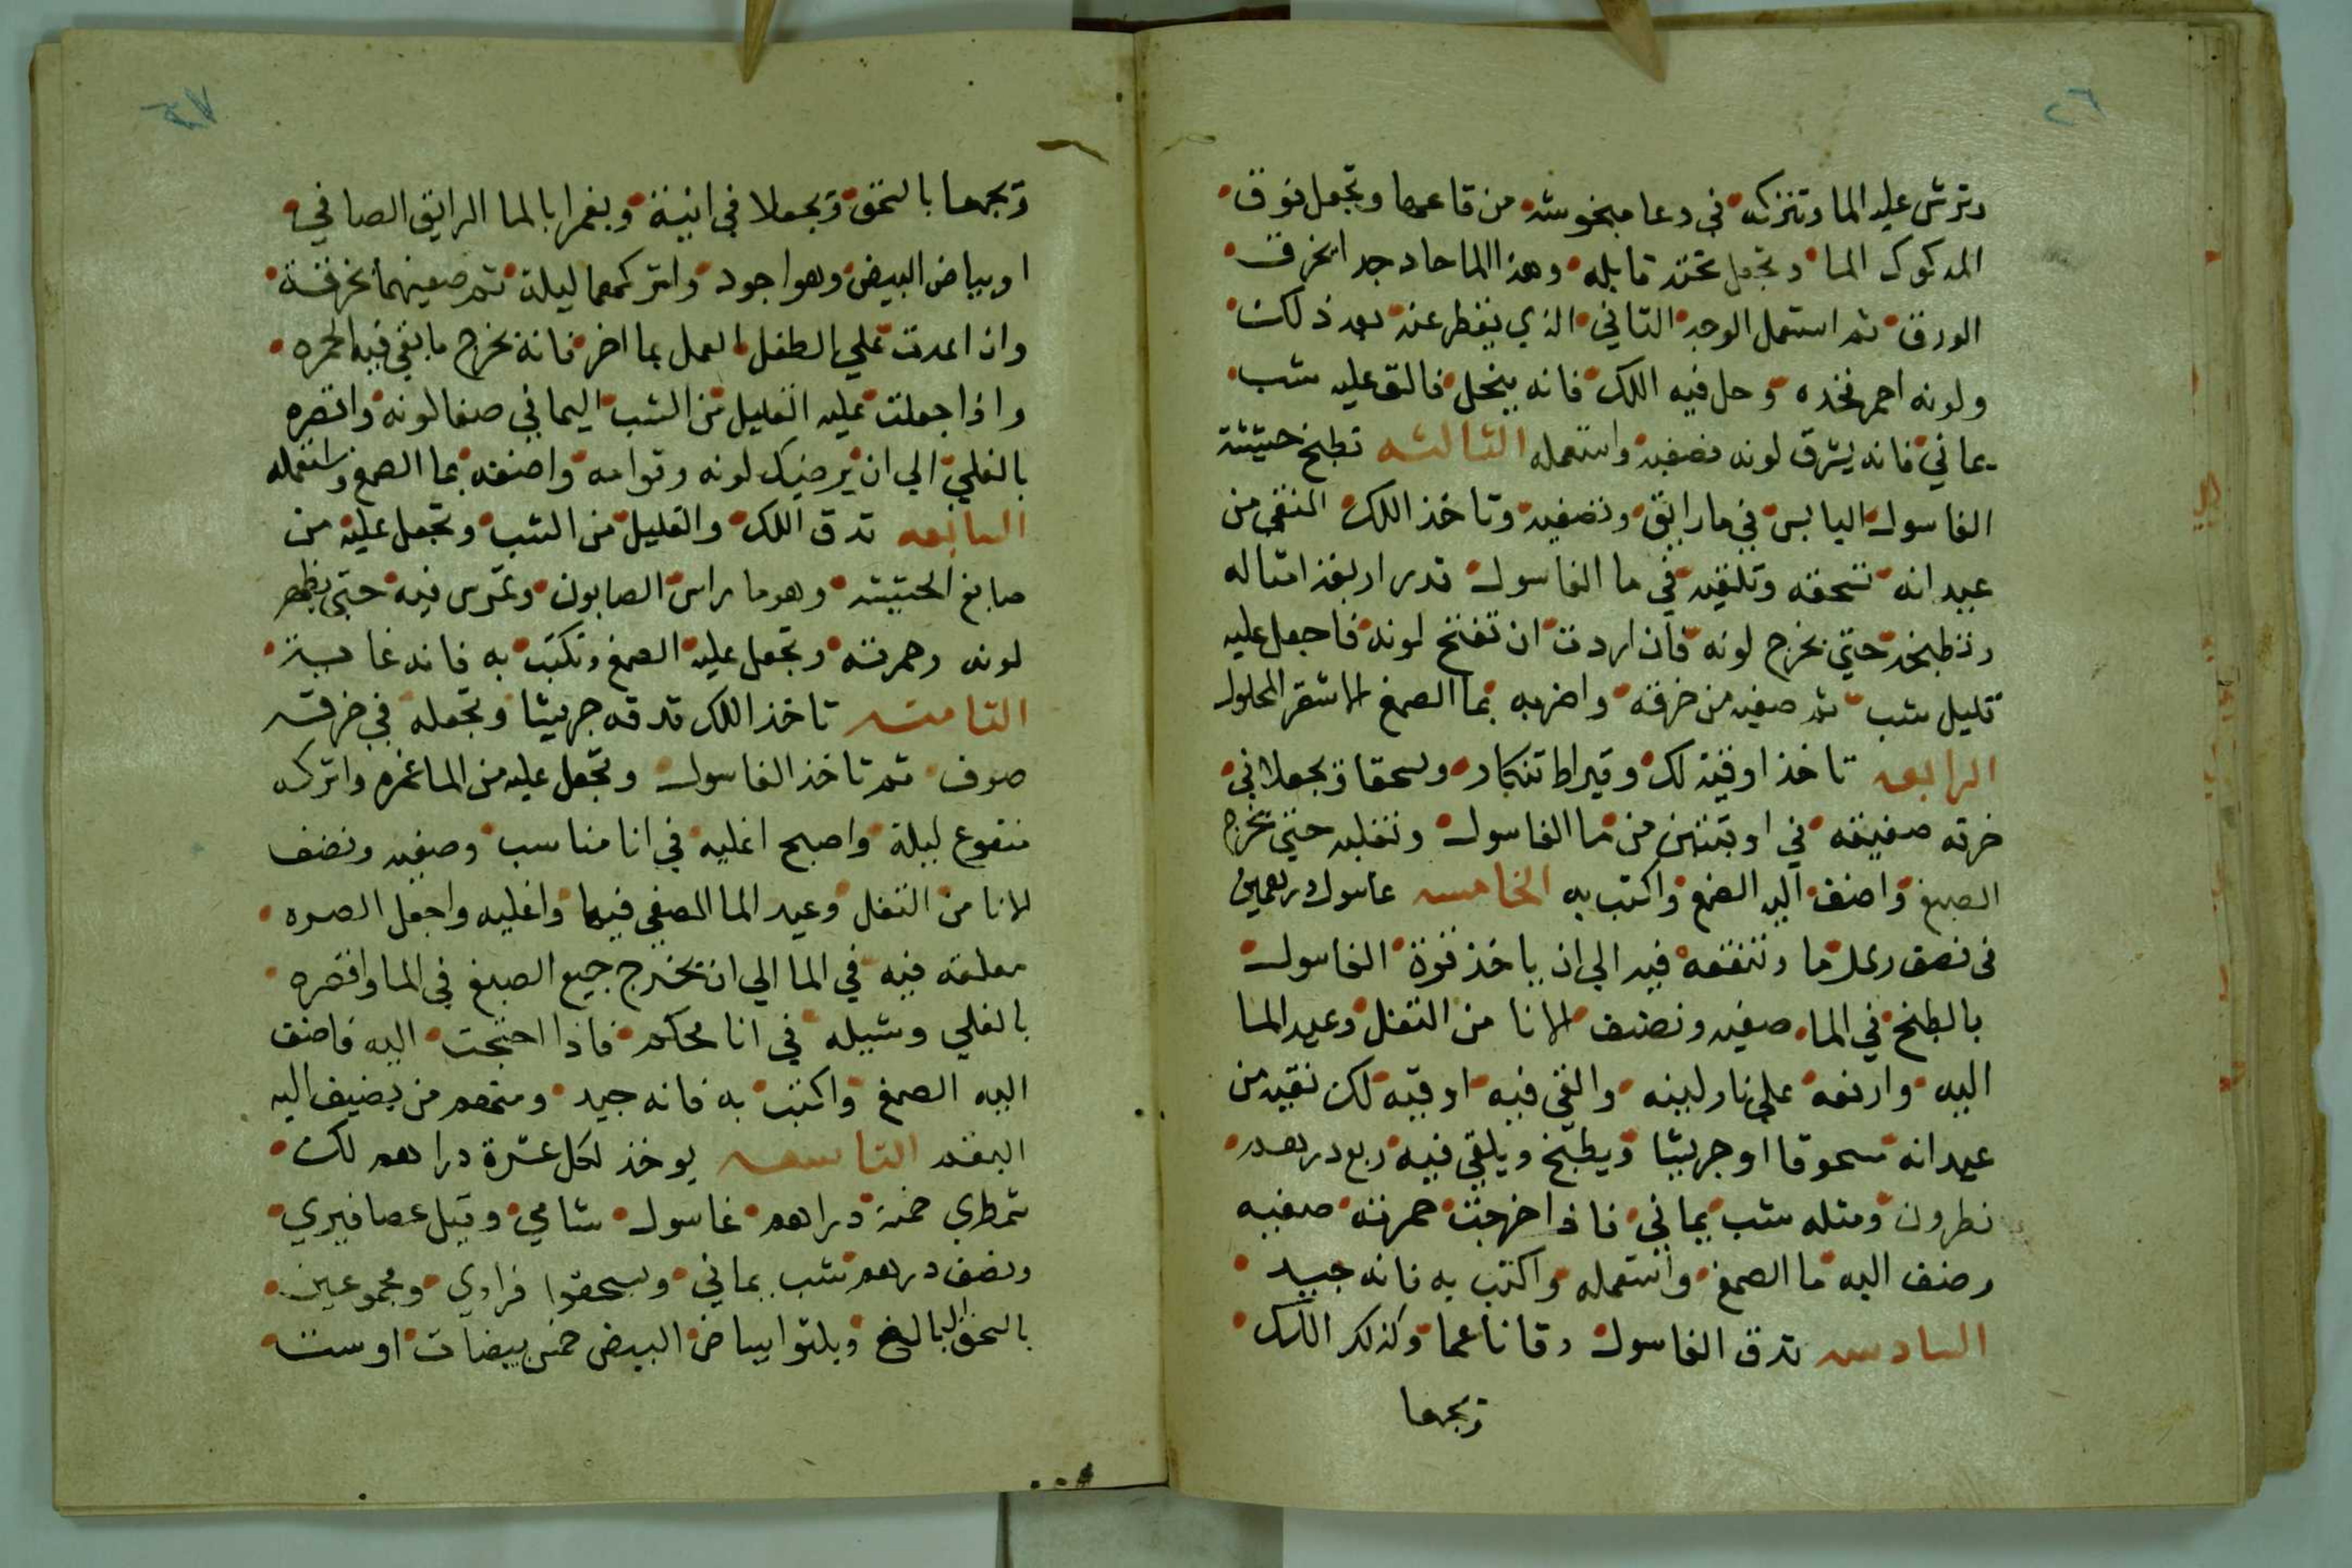 ٢٦
وترش عليه الما وتتركه في وعا مبخوشه من قاعها وتجعل فوق
المدكوك الما وتجعل تحته قابله وهذا الما حاد جدا يخرق
الورق ثم استعمل الوجه التاني الذي يقطر عنه بعد ذلك
ولونه احمر فخده وحل فيه اللك فانه ينحل فالق عليه شب
يماني فانه يشرق لونه فصفيه واستعمله الثالثه تطبخ حشيشة
الغاسول اليابس في ما رايق وتصفيه وتاخذ اللك المنقى من
عيدانه تسحقه وتلقيه في ما الغاسول قدر اربعة امثاله
وتطبخه حتي يخرج لونه فان اردت ان تفتح لونه فاجعل عليه
قليل شب ثم صفيه من خرقه واضربه بما الصمغ الاشقر المحلول
الرابعه تاخذ اوقية لك وقيراط تنكار ويسحقا ويجعلا في
خرقه صفيقه في اوقيتين من ما الغاسول وتغليه حتي يخرج
الصبغ واضف اليه الصمغ واكتب به الخامسه غاسول درهمين
في نصف رطل ما وتنقعه فيه الي ان ياخذ قوة الغاسول
بالطبخ في الما صفيه ونضف الانا من التفل وعيد الما
اليه وارفعه علي نار لينه والقي فيه اوقيه لك نقيه من
عيدانه مسحوقا او جريشا ويطبخ ويلقي فيه ربع درهم
نطرون ومثله شب يماني فاذا خرجت حمرته صفيه
وضف اليه ما الصمغ واستعمله واكتب به فانه جيد
السادسه تدق الغاسول دقا ناعما وكذلك اللك
وتجمعها
٢٧
وتجمعها بالسحق ويجعلا في انية ويغمرا بالما الرايق الصافي
او بياض البيض وهو اجود واتركهما ليلة ثم صفيهما بخرقة
وان اعدت علي الطفل العمل بما اخر فانه يخرج ما بقي فيه الحمره
واذا جعلت عليه القليل من الشب اليماني صفا لونه واقصره
بالغلي الي ان يرضيك لونه وقوامه واضفه بما الصمغ واستعمله
السابعه تدق اللك والقليل من الشب وتجعل عليه من
صابغ الحشيشه وهو ما راس الصابون وتمرس فيه حتي يظهر
لونه وحمرته وتجعل عليه الصمغ وتكتب به فانه غاية
الثامنه تاخذ اللك تدقه جريشا وتجعله في خرقه
صوف ثم تاخذ الغاسول وتجعل عليه من الما غمره واتركه
منقوع ليلة واصبح اغليه في انا مناسب وصفيه ونضف
الانا من التفل وعيد الما المصفي فيها واغليه واجعل الصره
معلقه فيه في الما الي ان يخرج جميع الصبغ في الما واقصره
بالغلي وشيله في انا محكم فاذا احتجت اليه فاضف
اليه الصمغ واكتب به فانه جيد ومنهم من يضيف اليه
البقم التاسعه يوخذ لكل عشرة دراهم لك
شمطري خمسة دراهم غاسول شامي وقيل عصافيري
ونصف درهم شب يماني ويسحقوا فرادي ومجموعين
بالسحق البالغ ويلتوا ببياض البيض خمس بيضات او ست